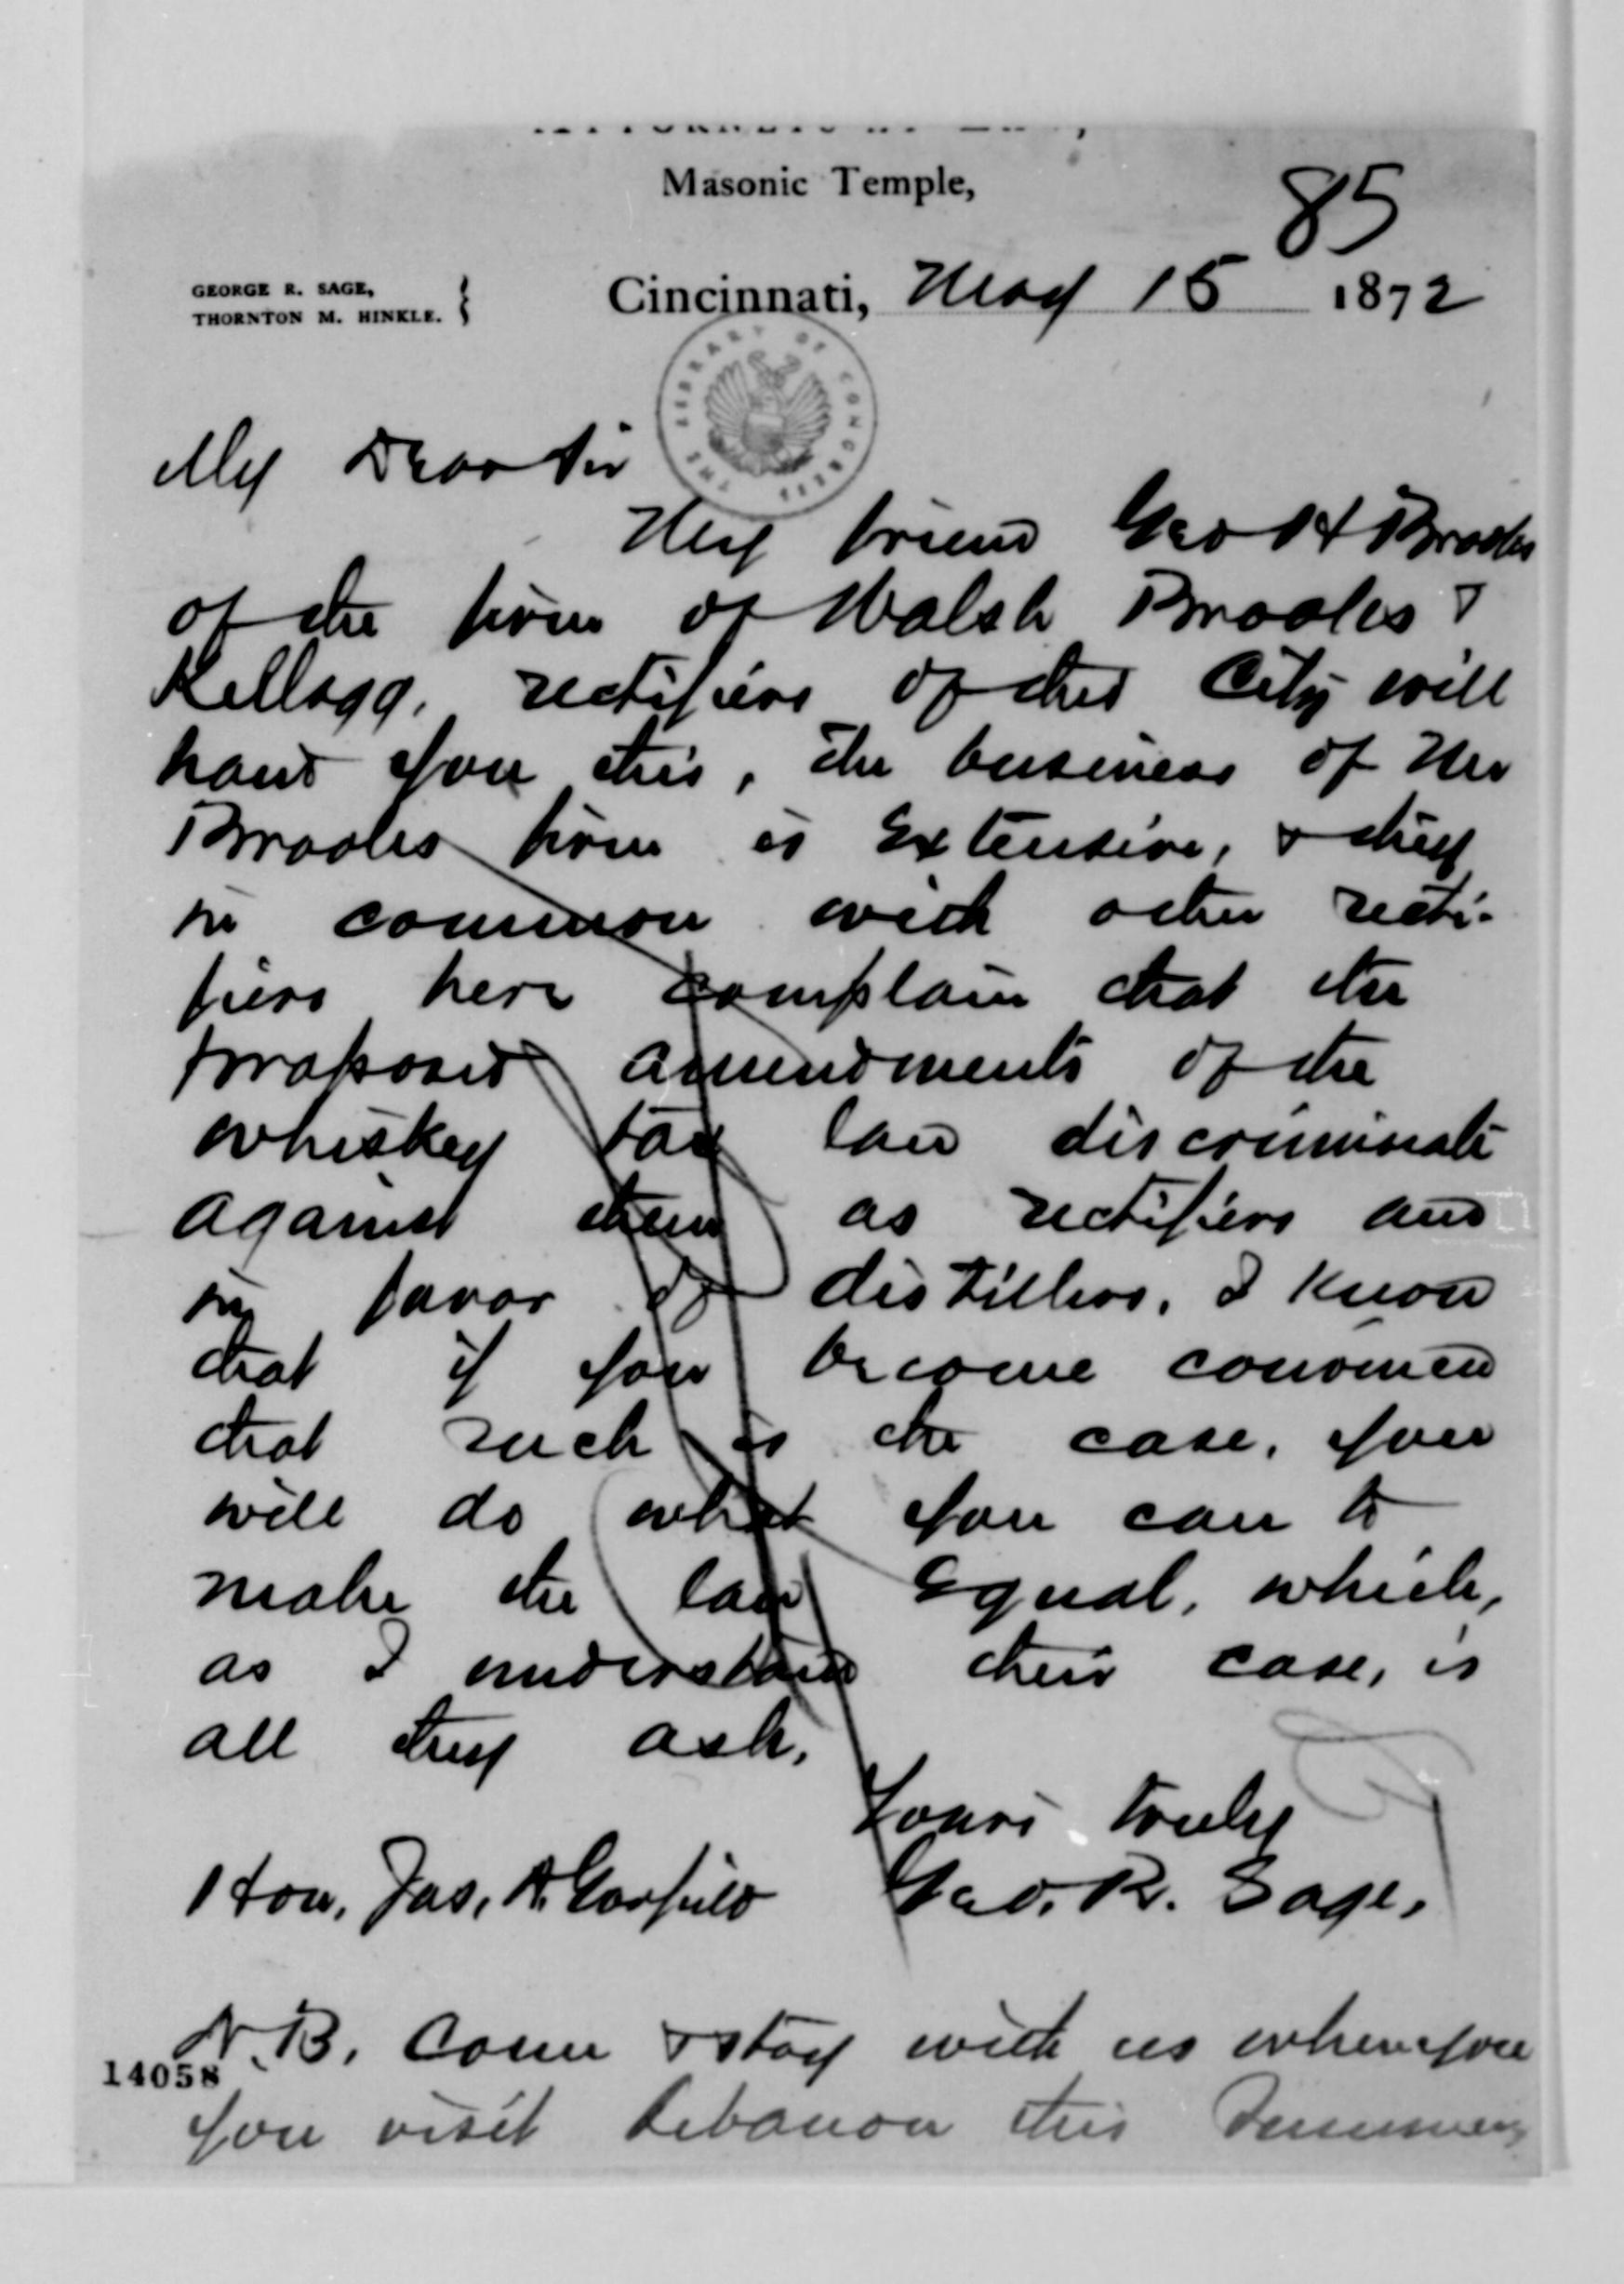 ATTORNEYS AT LAW,
Masonic Temple,
85
GEORGE R. SAGE,
THORNTON M. HINKLE.
Cincinnati, May 15 1872
THE LIBRARY OF CONGRESS
My Dear Sir
My friend Geo H Brooks
of the firm of Walsh Brooks &
Kellogg, rectifiers of this City will
hand you this, The business of Mr
Brooks firm is Extensive, & they
in common with other recti-
fiers here complain that the
proposed amendments of the
whiskey tax law discriminate
against them as rectifiers and
in favor of distillers. I know
that if you become convinced
that such is the case, you
will do what you can to
make the law Equal, which,
as I understand their case, is
all they ask.
Yours truly
Hon. Jas. A. Garfield Geo. R. Sage.
N.B. Come & stay with us when you
14058
you visit Lebanon this Summer